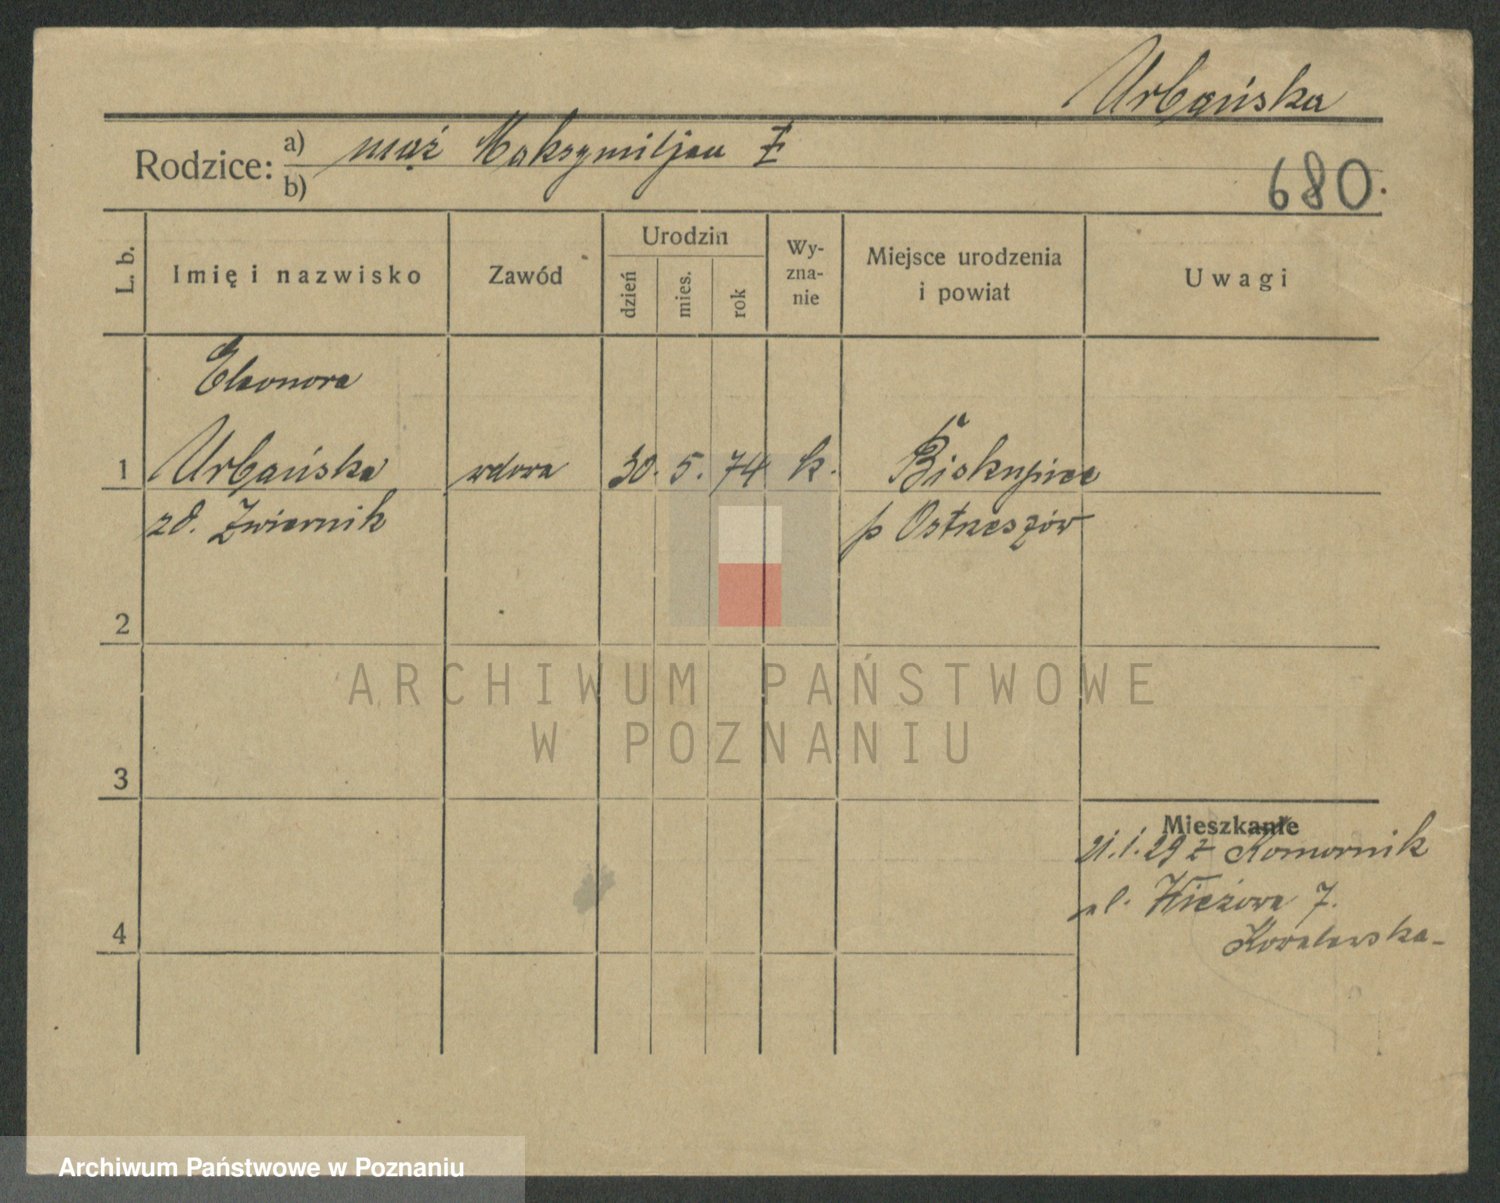 Urbańska
Rodzice: a) mąż Maksymiljan Ł
b)
680.
L. b.
Imię i nazwisko
Zawód
Urodzin
dzień
mies.
rok
Wy-
zna-
nie
Miejsce urodzenia
i powiat
Uwagi
Eleonora
1 Urbańska wdowa 30. 5. 74 k. Biskupice
zd. Zwiernik p Ostrzeszów
2
3
4
Mieszkanie
21.1.29 z Komornik
ul. Wieżowa 7.
Kowalewska
ARCHIWUM PAŃSTWOWE
W POZNANIU
Archiwum Państwowe w Poznaniu